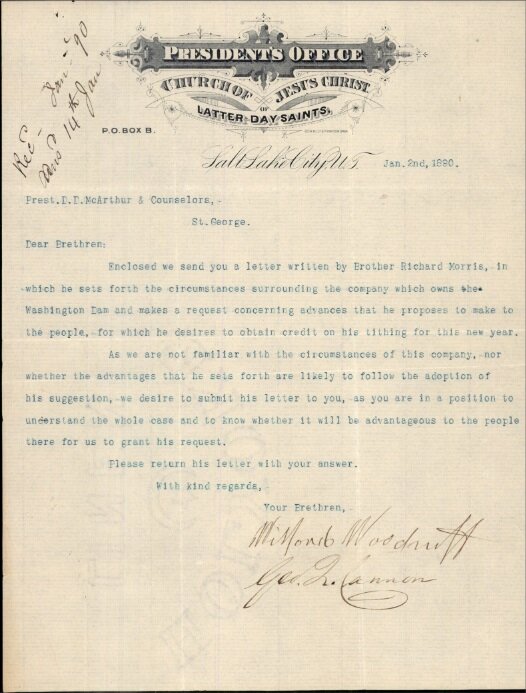 PRESIDENT'S OFFICE
CHURCH OF JESUS CHRIST
OF
LATTER DAY SAINTS,
P.O. BOX B.
Rec- Jan- 90
Ans 14th Jan
Salt Lake City, U.T. Jan. 2nd, 1890.
Prest. D.D. McArthur & Counselors,
St. George.
Dear Brethren:
Enclosed we send you a letter written by Brother Richard Morris, in
which he sets forth the circumstances surrounding the company which owns the
Washington Dam and makes a request concerning advances that he proposes to make to
the people, for which he desires to obtain credit on his tithing for this new year.
As we are not familiar with the circumstances of this company, nor
whether the advantages that he sets forth are likely to follow the adoption of
his suggestion, we desire to submit his letter to you, as you are in a position to
understand the whole case and to know whether it will be advantageous to the people
there for us to grant his request.
Please return his letter with your answer.
With kind regards,
Your Brethren,
Wilford Woodruff
Geo. Q. Cannon